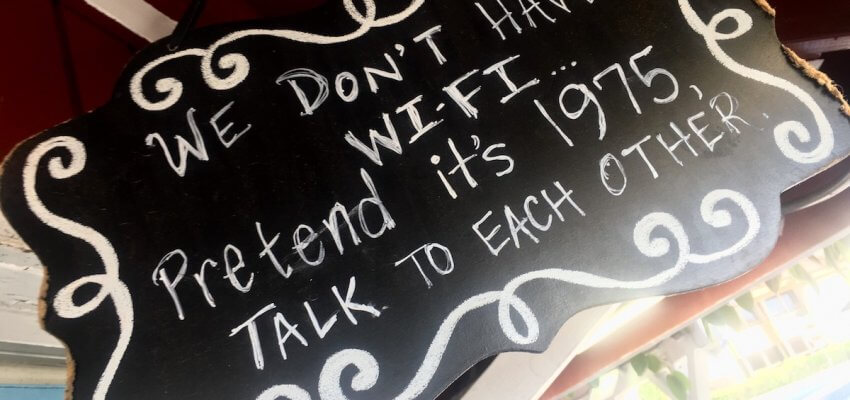 WE DON'T HAVE
WI-FI...
Pretend it's 1975,
TALK TO EACH OTHER.